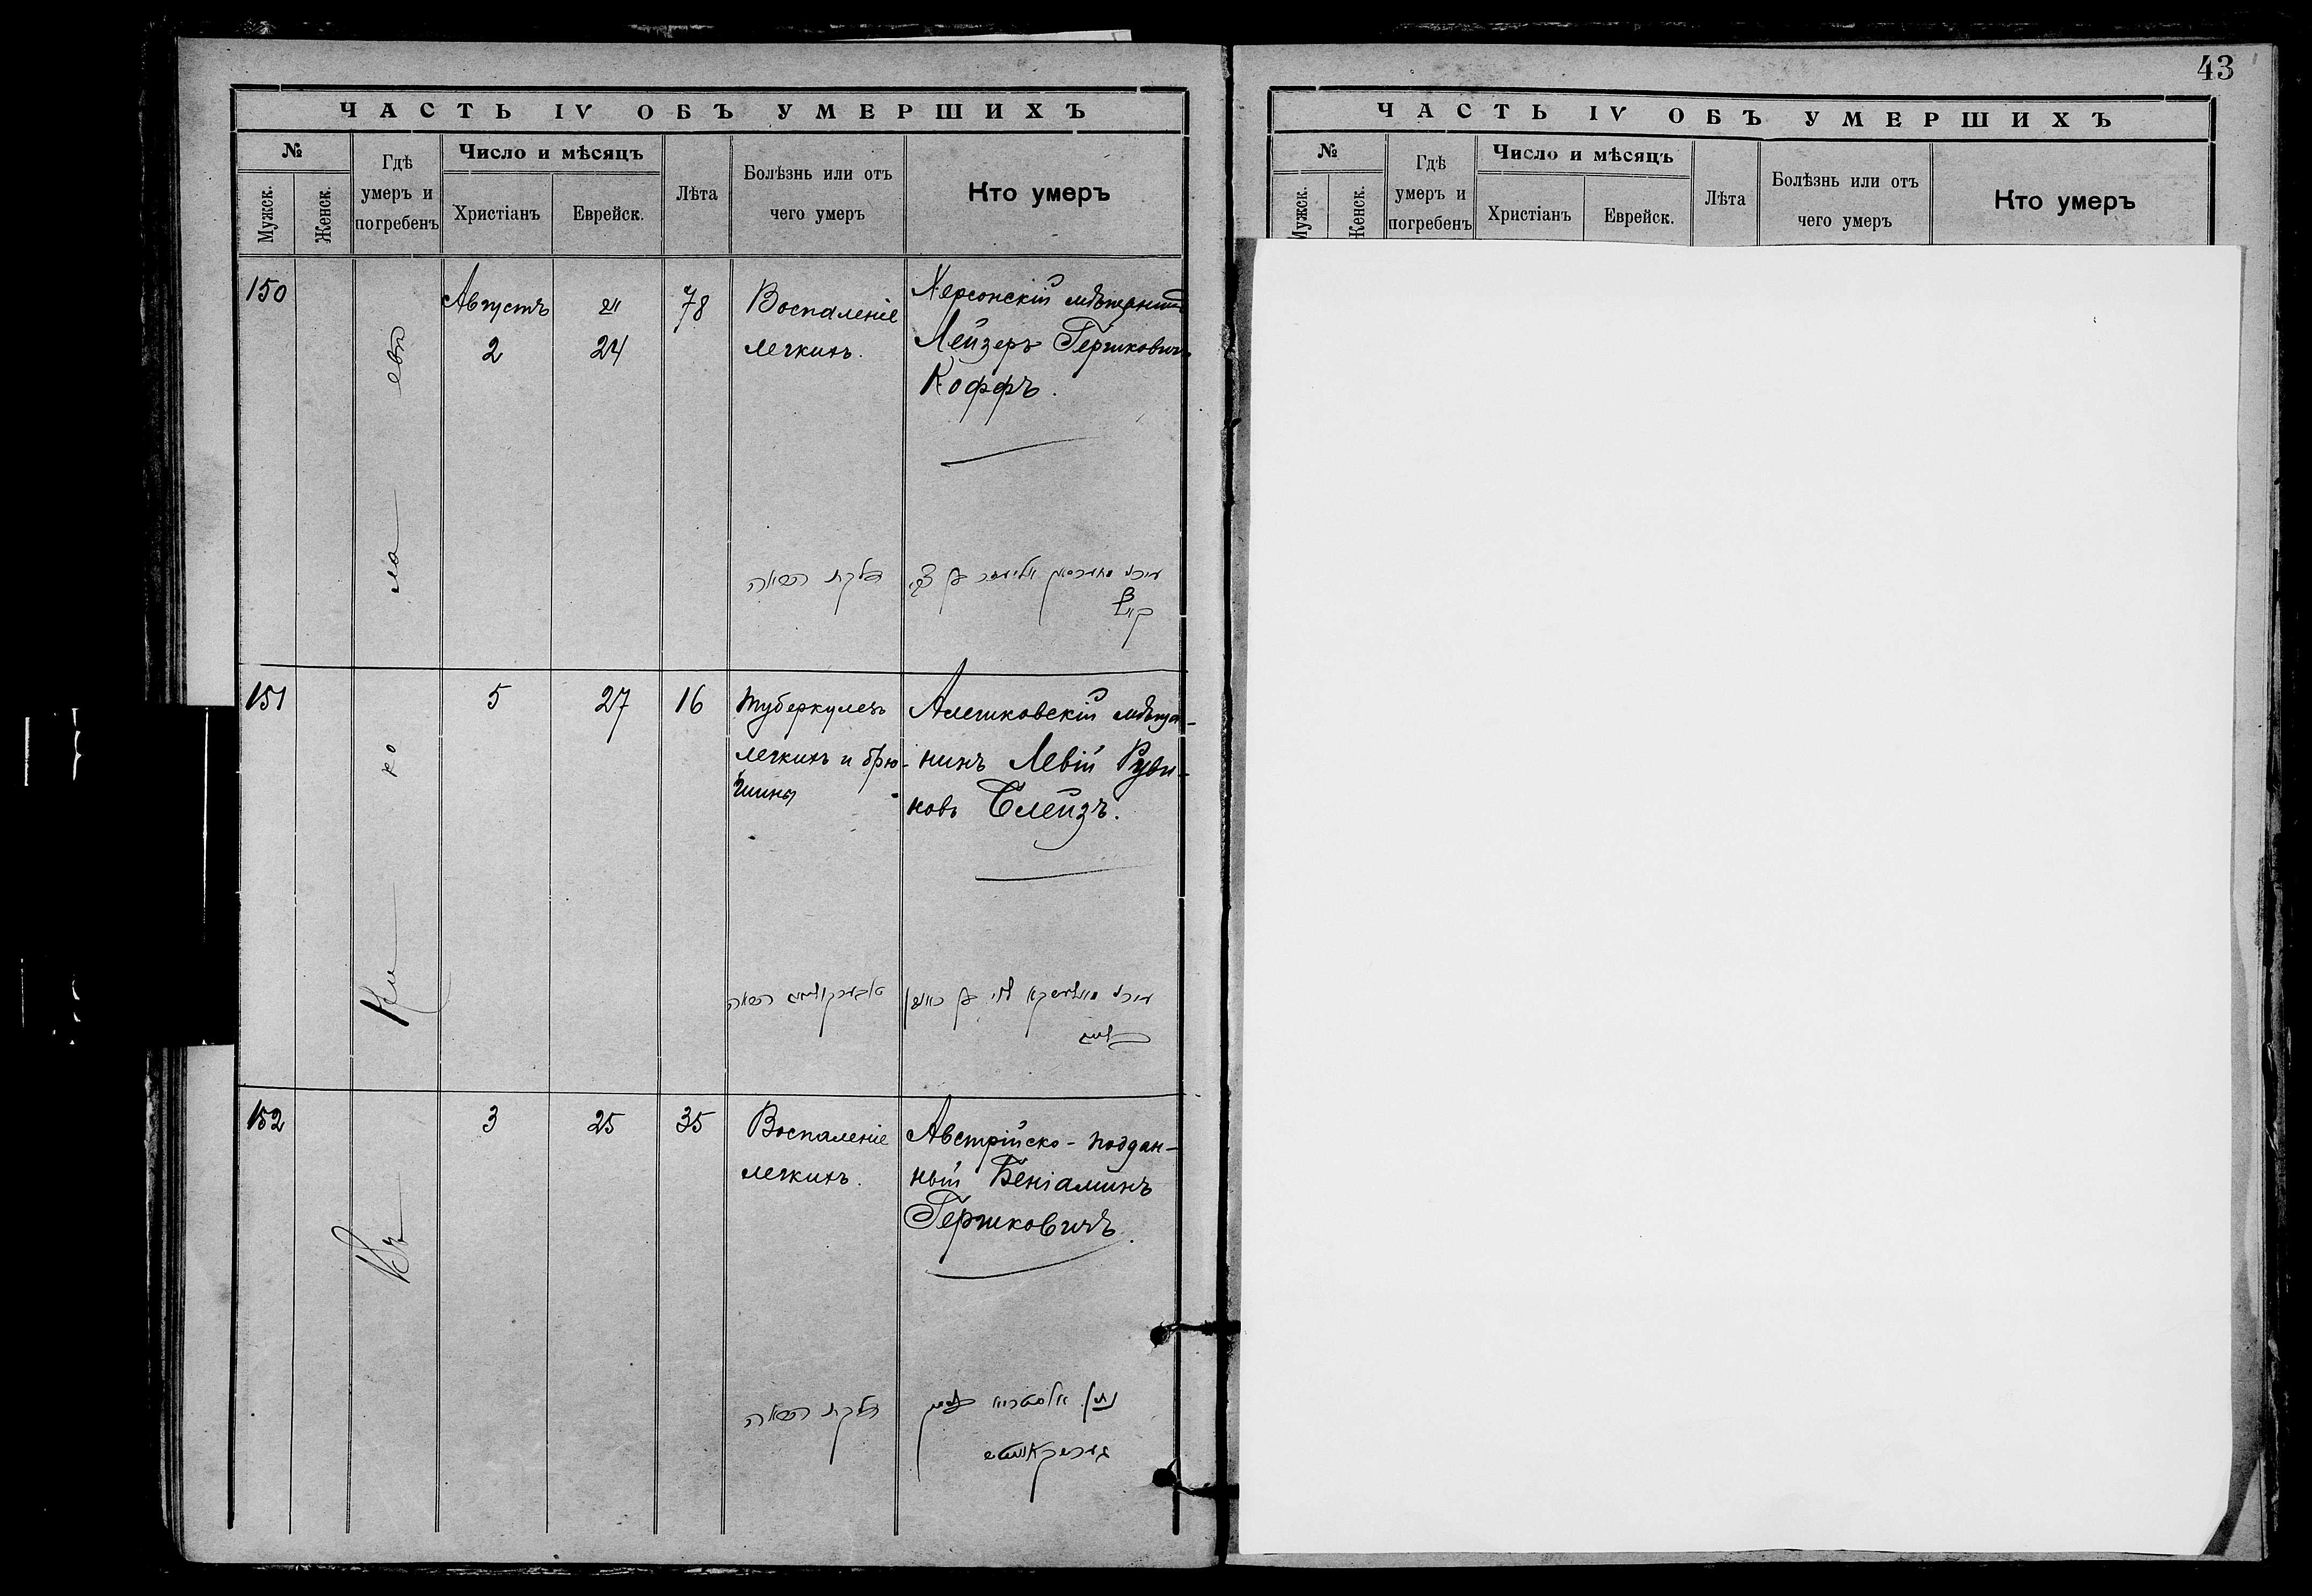 43
ЧАСТЬ IV ОБЪ УМЕРШИХЪ
№
Мужск.
Женск.
Гдѣ
умеръ и
погребенъ
Число и мѣсяцъ
Христіанъ
Еврейск.
Лѣта
Болѣзнь или отъ
чего умеръ
Кто умеръ
150
Августъ
2
24
78
Воспаленіе
легкихъ.
Херсонскій мѣщанинъ
Лейзеръ Гершковичъ
Коффъ.
דלקת הריאה
151
5
27
16
Туберкулезъ
легкихъ и брю-
шины
Алешковскій мѣща-
нинъ Левій Руви-
новъ Блейзъ.
הריאה
152
3
25
35
Воспаленіе
легкихъ.
Австрійско-поддан-
ный Веніаминъ
Гершковичъ.
דלקת הריאה
Въ Николаевѣ
ЧАСТЬ IV ОБЪ УМЕРШИХЪ
№
Мужск.
Женск.
Гдѣ
умеръ и
погребенъ
Число и мѣсяцъ
Христіанъ
Еврейск.
Лѣта
Болѣзнь или отъ
чего умеръ
Кто умеръ